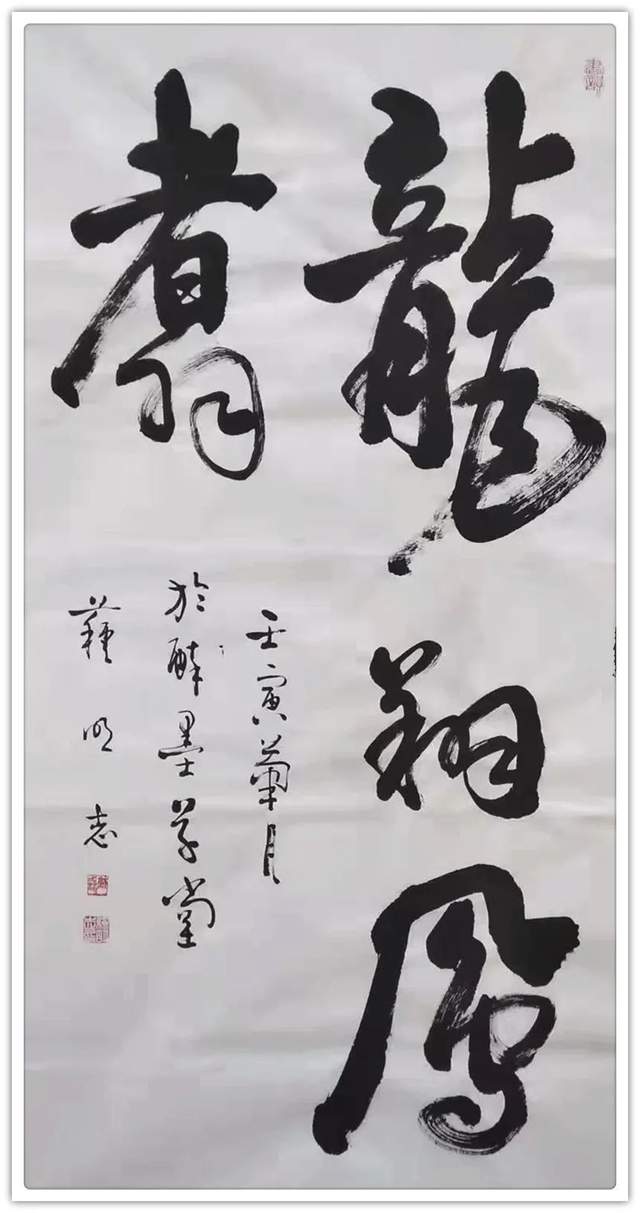 龍翔鳳
翥
壬寅菊月
於醉墨草堂
蘇明志